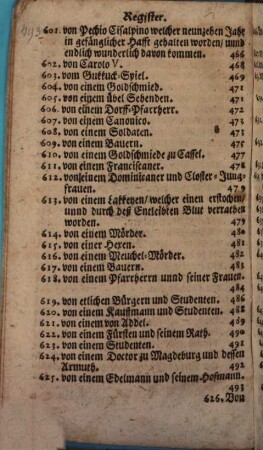 Register.
601. von Pechio Cisalpino welcher neunzehen Jahr
in gefänglicher Hafft gehalten worden/ unnd
endlich wunderlich davon kommen. 466
602. von Carolo V. 468
603. vom Guckuck-Spiel. 469
604. von einem Goldschmied. 471
605. von einem übel Sehenden. 471
606. von einem Dorff-Pfarrherr. 472
607. von einem Canonico. 473
608. von einem Soldaten. 473
609. von einem Bauern. 475
610. von einem Goldschmiede zu Cassel. 477
611. von einem Franciscaner. 477
612. von einem Dominicaner und Closter-Jung-
frauen. 479
613. von einem Lakkeyen/ welcher einen erstochen/
unnd durch deß Entleibten Blut verrathen
worden. 479
614. von einem Mörder. 480
615. von einer Hexen. 481
616. von einem Meuchel-Mörder. 482
617. von einem Bauern. 483
618. von einem Pfarrherrn unnd seiner Frauen.
619. von etlichen Bürgern und Studenten. 486
620. von einem Kauffmann und Studenten. 488
621. von einem von Addel. 489
622. von einem Fürsten und seinem Rath. 490
623. von einem Studenten. 491
624. von einem Doctor zu Magdeburg und dessen
Armuth. 492
625. von einem Edelmann und seinem Hofmann.
493
626. Von